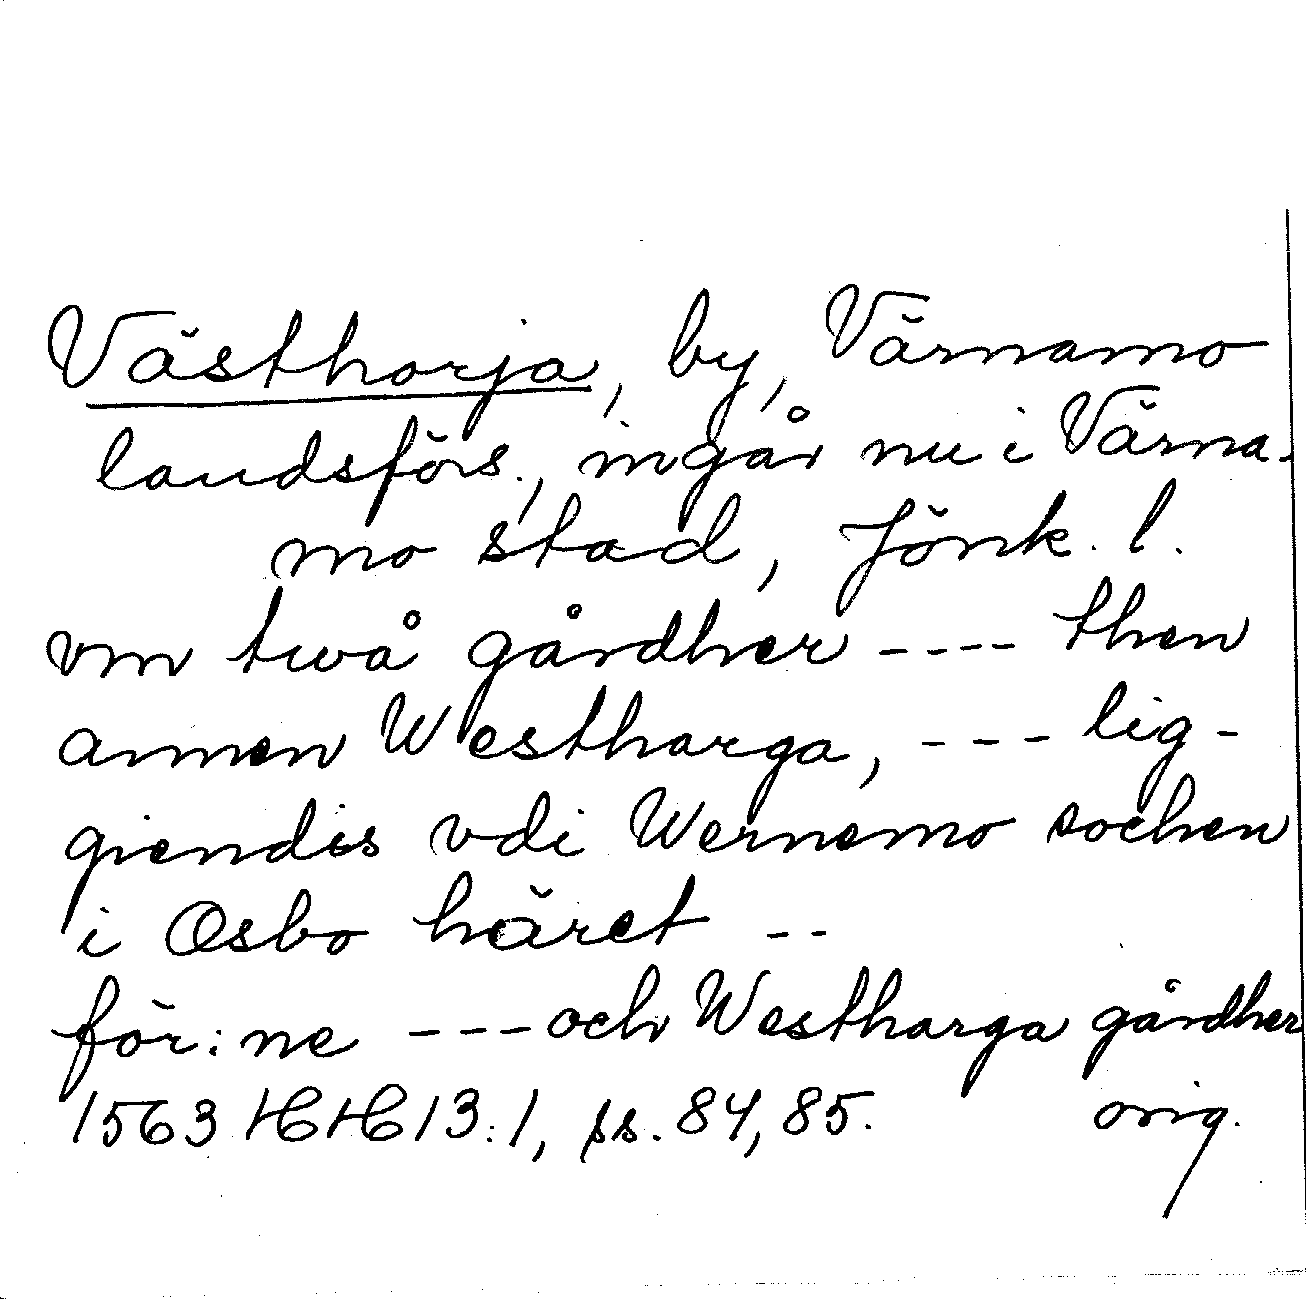 Västhorja, by, Värnamo
landsförs., ingår nu i Värna-
mo stad, Jönk. l.
vm twå gårdher ---- then
annen Westharga, --- lig-
giendis vdi Wernemo sochen
i Osbo häret --
för:ne --- och Westharga gårdher
1563 HH 13:1, ss. 84, 85. orig.